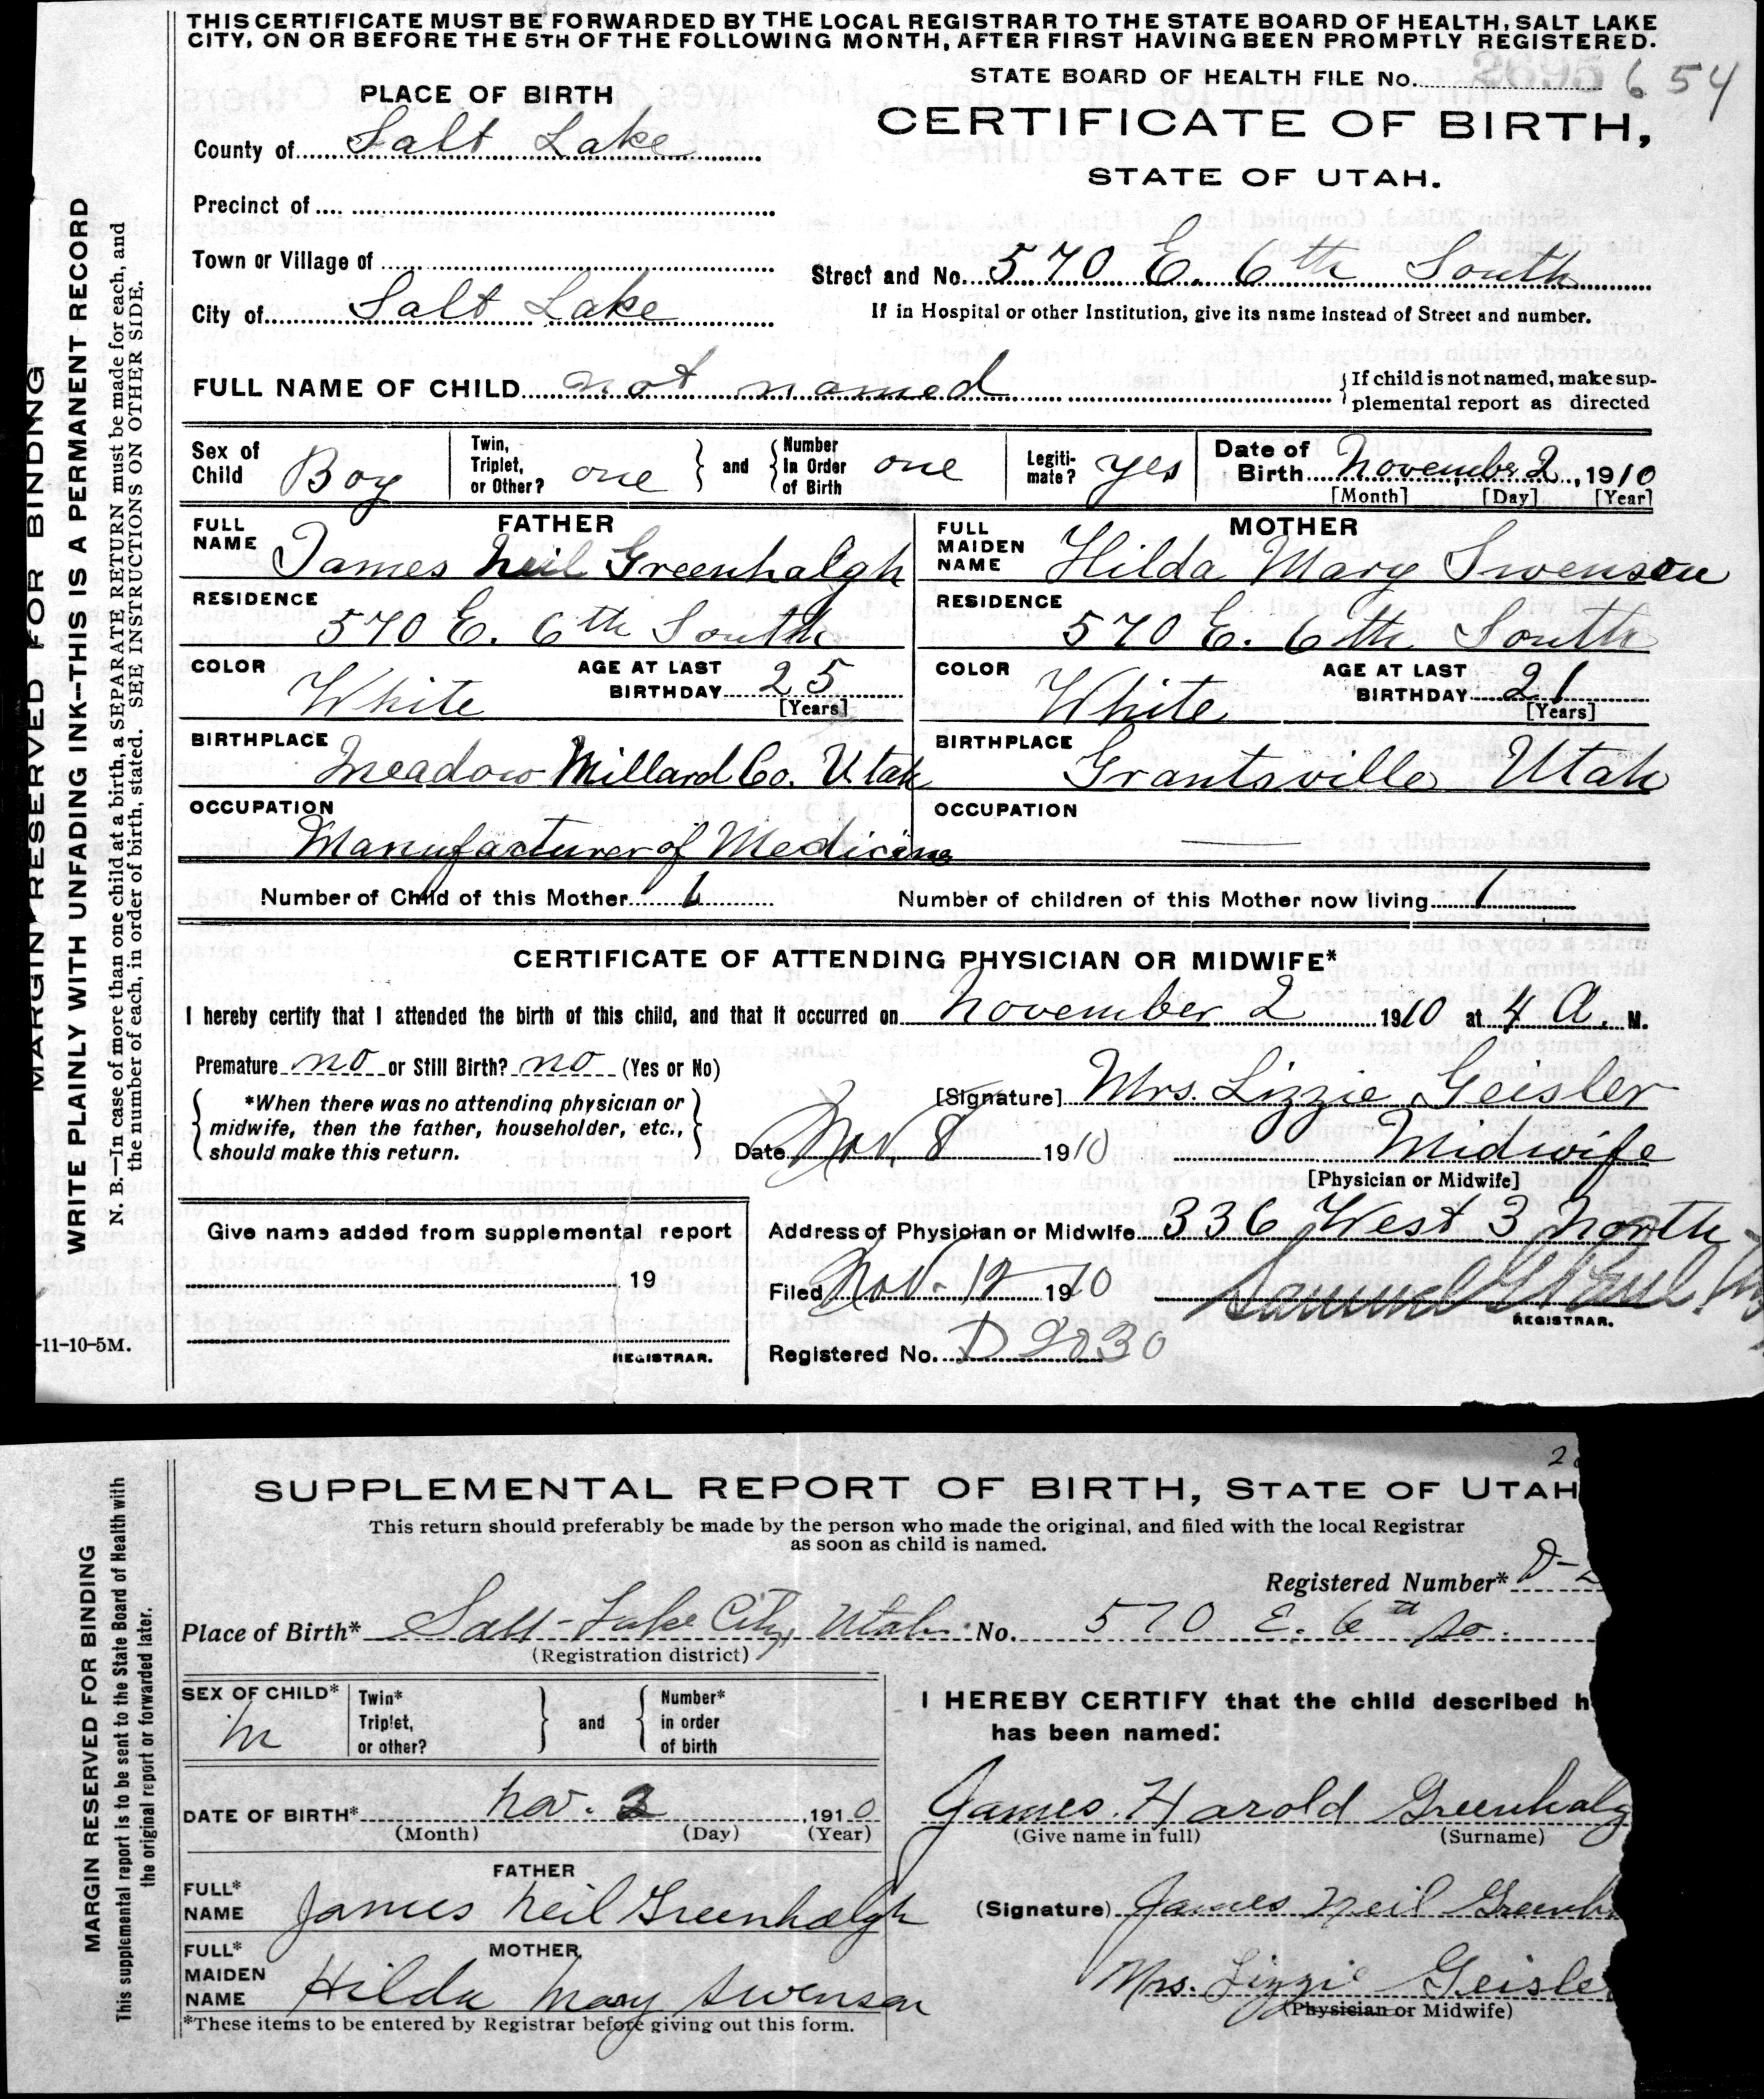 THIS CERTIFICATE MUST BE FORWARDED BY THE LOCAL REGISTRAR TO THE STATE BOARD OF HEALTH, SALT LAKE
CITY, ON OR BEFORE THE 5TH OF THE FOLLOWING MONTH, AFTER FIRST HAVING BEEN PROMPTLY REGISTERED.
STATE BOARD OF HEALTH FILE No. 2695 654
PLACE OF BIRTH
CERTIFICATE OF BIRTH,
STATE OF UTAH.
County of Salt Lake
Precinct of
Town or Village of
Street and No. 570 E. 6th South
City of Salt Lake
If in Hospital or other Institution, give its name instead of Street and number.
FULL NAME OF CHILD not named
If child is not named, make sup-
plemental report as directed
Sex of Child Boy
Twin, Triplet, or Other? one
and
Number In Order of Birth one
Legiti-mate? yes
Date of Birth November 2, 1910
[Month] [Day] [Year]
FATHER
FULL NAME James Neil Greenhalgh
MOTHER
FULL MAIDEN NAME Hilda Mary Swenson
RESIDENCE 570 E. 6th South
RESIDENCE 570 E. 6th South
COLOR White AGE AT LAST BIRTHDAY 25 [Years]
COLOR White AGE AT LAST BIRTHDAY 21 [Years]
BIRTHPLACE Meadow Millard Co. Utah
BIRTHPLACE Grantsville Utah
OCCUPATION Manufacturer of Medicine
OCCUPATION
Number of Child of this Mother 1 Number of children of this Mother now living 1
CERTIFICATE OF ATTENDING PHYSICIAN OR MIDWIFE*
I hereby certify that I attended the birth of this child, and that it occurred on November 2 1910 at 4 A. M.
Premature no or Still Birth? no (Yes or No)
*When there was no attending physician or
midwife, then the father, householder, etc.,
should make this return.
[Signature] Mrs. Lizzie Geisler
Date Nov. 8 1910 Midwife
[Physician or Midwife]
Give name added from supplemental report
19
REGISTRAR.
Address of Physician or Midwife 336 West 3 North
Filed Nov. 12 1910 Samuel G. Paul
REGISTRAR.
Registered No. D 2030
MARGIN RESERVED FOR BINDING
WRITE PLAINLY WITH UNFADING INK--THIS IS A PERMANENT RECORD
N. B.—In case of more than one child at a birth, a SEPARATE RETURN must be made for each, and
the number of each, in order of birth, stated. SEE INSTRUCTIONS ON OTHER SIDE.
-11-10-5M.
SUPPLEMENTAL REPORT OF BIRTH, STATE OF UTAH
This return should preferably be made by the person who made the original, and filed with the local Registrar
as soon as child is named.
Registered Number* D-2
Place of Birth* Salt Lake City, Utah No. 570 E. 6th So.
(Registration district)
SEX OF CHILD* M
Twin* Triplet, or other?
and
Number* in order of birth
I HEREBY CERTIFY that the child described h
has been named:
DATE OF BIRTH* Nov. 2, 1910
(Month) (Day) (Year)
James Harold Greenhalg
(Give name in full) (Surname)
FATHER
FULL* NAME James Neil Greenhalgh
(Signature) James Neil Greenh
MOTHER
FULL* MAIDEN NAME Hilda Mary Swenson
Mrs. Lizzie Geisler
(Physician or Midwife)
*These items to be entered by Registrar before giving out this form.
MARGIN RESERVED FOR BINDING
This supplemental report is to be sent to the State Board of Health with
the original report or forwarded later.